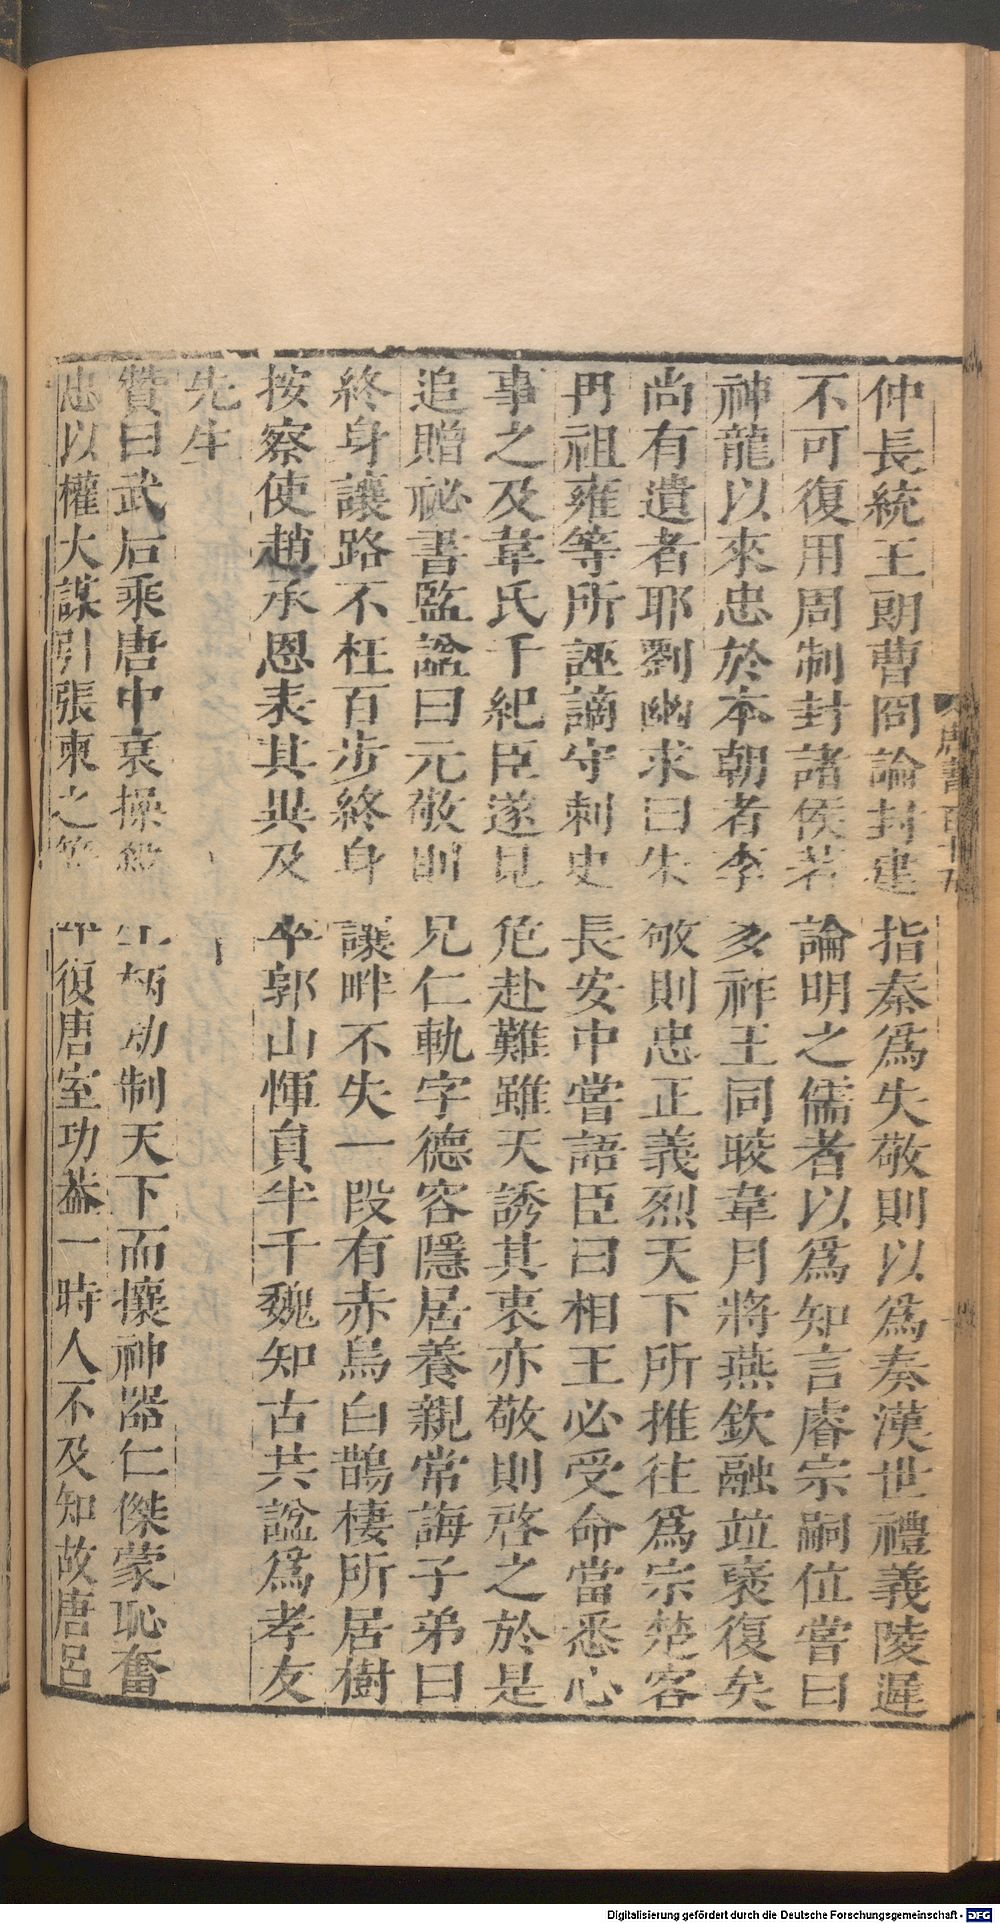 仲長統王朗曹冏論封建指秦爲失敬則以爲奏漢世禮義陵遲
不可復用周制封諸侯若論明之儒者以爲知言睿宗嗣位嘗曰
神龍以來忠於本朝者李多祚王同晈韋月將燕欽融竝褒復矣
尚有遺者耶劉幽求曰朱敬則忠正義烈天下所推往爲宗楚客
冉祖雍等所誣謫守刺史長安中嘗語臣曰相王必受命當悉心
事之及韋氏干紀臣遂見危赴難雖天誘其衷亦敬則啓之於是
追贈祕書監諡曰元敬則兄仁軌字德容隱居養親常誨子弟曰
終身讓路不枉百步終身讓畔不失一段有赤烏白鵲棲所居樹
按察使趙承恩表其異及卒郭山惲員半千魏知古共諡爲孝友
先生
贊曰武后乘唐中衰操殺生柄劫制天下而攘神器仁傑蒙恥奮
忠以權大謀引張柬之等卒復唐室功葢一時人不及知故唐呂
唐書百十五